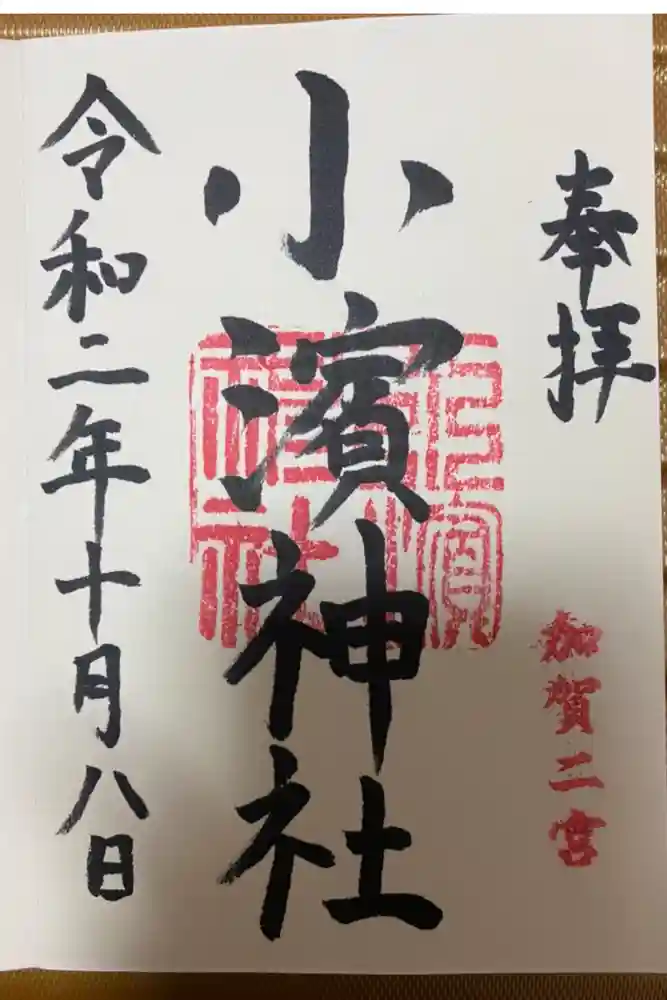 奉拝
加賀二宮
小濱神社
令和二年十月八日